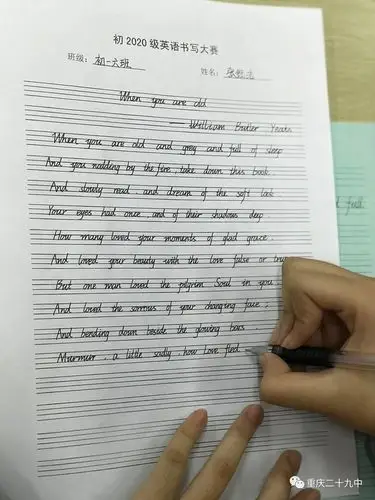 初2020级英语书写大赛
班级：初一六班 姓名：张
When you are old
—William Butler Yeats
When you are old and grey and full of sleep
And you nodding by the fire, take down this book
And slowly read and dream of the soft look
Your eyes had once and of their shadows deep
How many loved your moments of glad grace.
And loved your beauty with the love false or true
But one man loved the pilgrim Soul in you
And loved the sorrous of your changing face;
And bending down beside the glowing bars.
Murmur, a little sadly, how love fled.
full
重庆二十九中